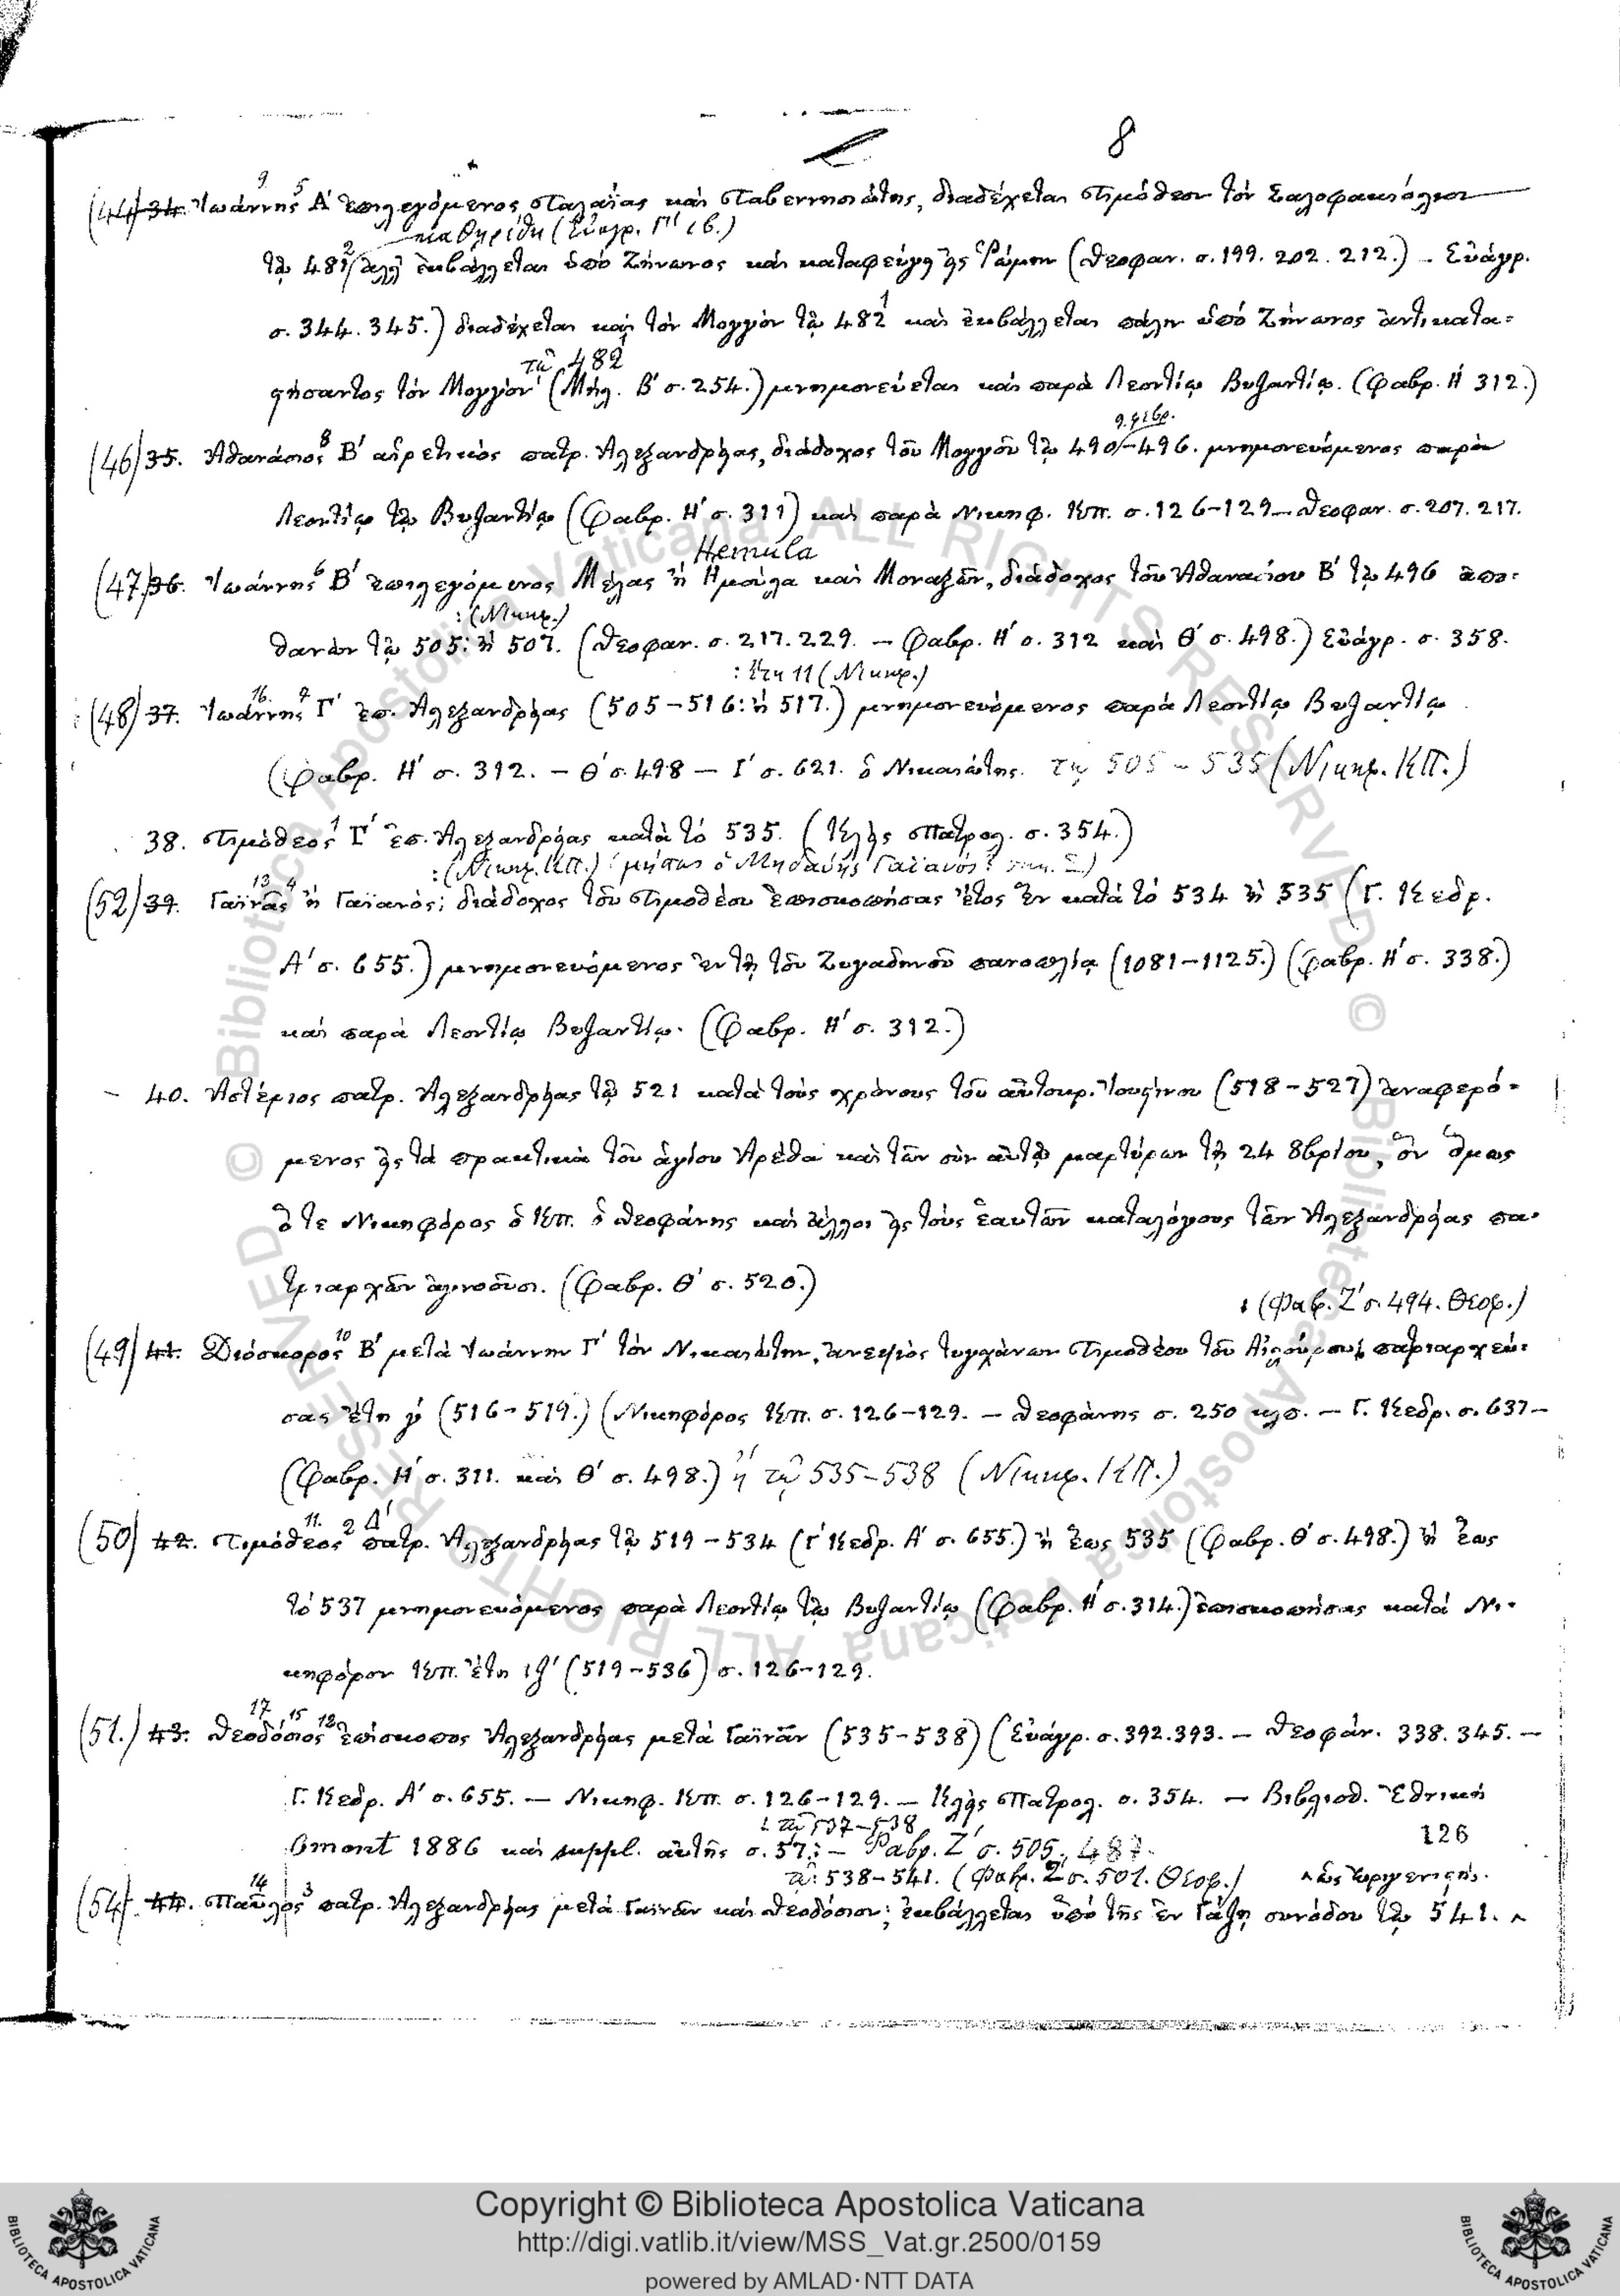 8
(44) 34. Ἰωάννης Α΄ ἐπιλεγόμενος Ταλαΐας καὶ Ταβεννησιώτης, διαδέχεται Τιμόθεον τὸν Σαλοφακιόλιον
καθηρέθη (Εὐαγρ. Γ΄ ιβ.)
τῷ 481 ἀλλ' ἐκβάλλεται ὑπὸ Ζήνωνος καὶ καταφεύγει εἰς Ῥώμην (Θεοφαν. σ. 199. 202. 212.) – Εὐάγρ.
σ. 344. 345.) διαδέχεται καὶ τὸν Μογγὸν τῷ 482 καὶ ἐκβάλλεται πάλιν ὑπὸ Ζήνωνος ἀντικατα-
τῷ 482
στήσαντος τὸν Μογγὸν (Μελ. Β΄ σ. 254.) μνημονεύεται καὶ παρὰ Λεοντίῳ Βυζαντίῳ. (Φαβρ. Η΄ 312.)
(46) 35. Ἀθανάσιος Β΄ αἱρετικὸς πατρ. Ἀλεξανδρείας, διάδοχος τοῦ Μογγοῦ τῷ 490–496. μνημονευόμενος παρὰ
Λεοντίῳ τῷ Βυζαντίῳ (Φαβρ. Η΄ σ. 311) καὶ παρὰ Νικηφ. Κπ. σ. 126–129 – Θεοφαν. σ. 207. 217.
Hemula
(47) 36. Ἰωάννης Β΄ ἐπιλεγόμενος Μέλας ἢ Ημούλα καὶ Μοναζῶν, διάδοχος τοῦ Ἀθανασίου Β΄ τῷ 496 ἀπο-
: (Νικηφ.)
θανὼν τῷ 505: ἢ 507. (Θεοφαν. σ. 217. 229. – Φαβρ. Η΄ σ. 312 καὶ Θ΄ σ. 498.) Εὐάγρ. σ. 358.
: ἔτη 11 (Νικηφ.)
(48) 37. Ἰωάννης Γ΄ ἐπ. Ἀλεξανδρείας (505–516: ἢ 517.) μνημονευόμενος παρὰ Λεοντίῳ Βυζαντίῳ
(Φαβρ. Η΄ σ. 312. – Θ΄ σ. 498 – Ι΄ σ. 621. ὁ Νικαιώτης. τῷ 505 – 535 (Νικηφ. ΚΠ.)
38. Τιμόθεος Γ΄ ἐπ. Ἀλεξανδρείας κατὰ τὸ 535. (Κλεὶς Πατρολ. σ. 354.)
: (Νικηφ. ΚΠ.)
(52) 39. Γαϊνᾶς ἢ Γαϊανὸς; διάδοχος τοῦ Τιμοθέου ἐπισκοπήσας ἔτος ἓν κατὰ τὸ 534 ἢ 535 (Γ. Κεδρ.
Α΄ σ. 655.) μνημονευόμενος ἐν τῇ τοῦ Ζυγαδηνοῦ πανοπλίᾳ (1081–1125.) (Φαβρ. Η΄ σ. 338.)
καὶ παρὰ Λεοντίῳ Βυζαντίῳ. (Φαβρ. Η΄ σ. 312.)
– 40. Ἀστέριος πατρ. Ἀλεξανδρείας τῷ 521 κατὰ τοὺς χρόνους τοῦ αὐτοκρ. Ἰουστίνου (518–527) ἀναφερό-
μενος εἰς τὰ πρακτικὰ τοῦ ἁγίου Ἀρέθα καὶ τῶν σὺν αὐτῷ μαρτύρων τῇ 24 8βρίου, ὃν ὅμως
ὅ τε Νικηφόρος ὁ Κπ. ὁ Θεοφάνης καὶ ἄλλοι εἰς τοὺς ἑαυτῶν καταλόγους τῶν Ἀλεξανδρείας πα-
τριαρχῶν ἀγνοοῦσι. (Φαβρ. Θ΄ σ. 520.)
(Φαβ. Ζ΄ σ. 494. Θεοφ.)
(49) 41. Διόσκορος Β΄ μετὰ Ἰωάννην Γ΄ τὸν Νικαιώτην, ἀνεψιὸς τυγχάνων Τιμοθέου τοῦ Αἰλούρου, πατριαρχεύ-
σας ἔτη γ΄ (516–519.) (Νικηφόρος Κπ. σ. 126–129. – Θεοφάνης σ. 250 κλπ. – Γ. Κεδρ. σ. 637 –
(Φαβρ. Η΄ σ. 311. καὶ Θ΄ σ. 498.) ἢ τῷ 535–538 (Νικηφ. ΚΠ.)
(50) 42. Τιμόθεος Δ΄ πατρ. Ἀλεξανδρείας τῷ 519–534 (Γ΄ Κεδρ. Α΄ σ. 655.) ἢ ἕως 535 (Φαβρ. Θ΄ σ. 498.) ἢ ἕως
τὸ 537 μνημονευόμενος παρὰ Λεοντίῳ τῷ Βυζαντίῳ (Φαβρ. Η΄ σ. 314.) ἐπισκοπήσας κατὰ Νι-
κηφόρον Κπ. ἔτη ιζ΄ (519–536) σ. 126–129.
(51.) 43. Θεοδόσιος ἐπίσκοπος Ἀλεξανδρείας μετὰ Γαϊνᾶν (535–538) (Εὐάγρ. σ. 392. 393. – Θεοφάν. 338. 345. –
Γ. Κεδρ. Α΄ σ. 655. – Νικηφ. Κπ. σ. 126–129. – Κλεὶς Πατρολ. σ. 354. – Βιβλιοθ. Ἐθνικὴ
: τῷ 537–538
126
Omont 1886 καὶ suppl. αὐτῆς σ. 57: – Φαβρ. Ζ΄ σ. 505, 487.
τῷ 538–541. (Φαβρ. Ζ΄ σ. 501. Θεοφ.) ^ ὡς ὠριγενιστής.
(54) 44. Παῦλος πατρ. Ἀλεξανδρείας μετὰ Γαϊνᾶν καὶ Θεοδόσιον; ἐκβάλλεται ὑπὸ τῆς ἐν Γάζῃ συνόδου τῷ 541. ^
© Biblioteca Apostolica Vaticana ALL RIGHTS RESERVED
Copyright © Biblioteca Apostolica Vaticana
http://digi.vatlib.it/view/MSS_Vat.gr.2500/0159
powered by AMLAD·NTT DATA
BIBLIOTECA APOSTOLICA VATICANA
BIBLIOTECA APOSTOLICA VATICANA